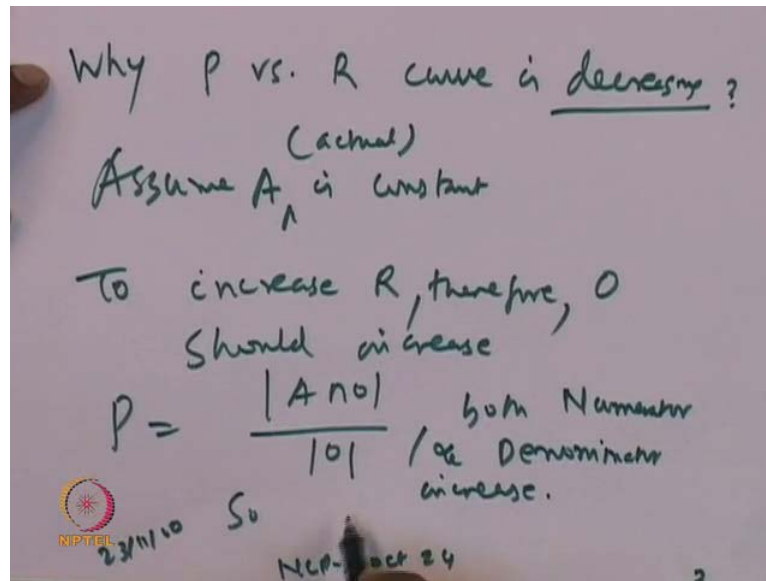 Why P vs. R curve is decreasing ?
(actual)
Assume A ^ is constant
To increase R, therefore, O
should increase
P = |A ∩ O| / |O| both Numerator
/ & Denominator
increase.
So
NPTEL
23/11/10